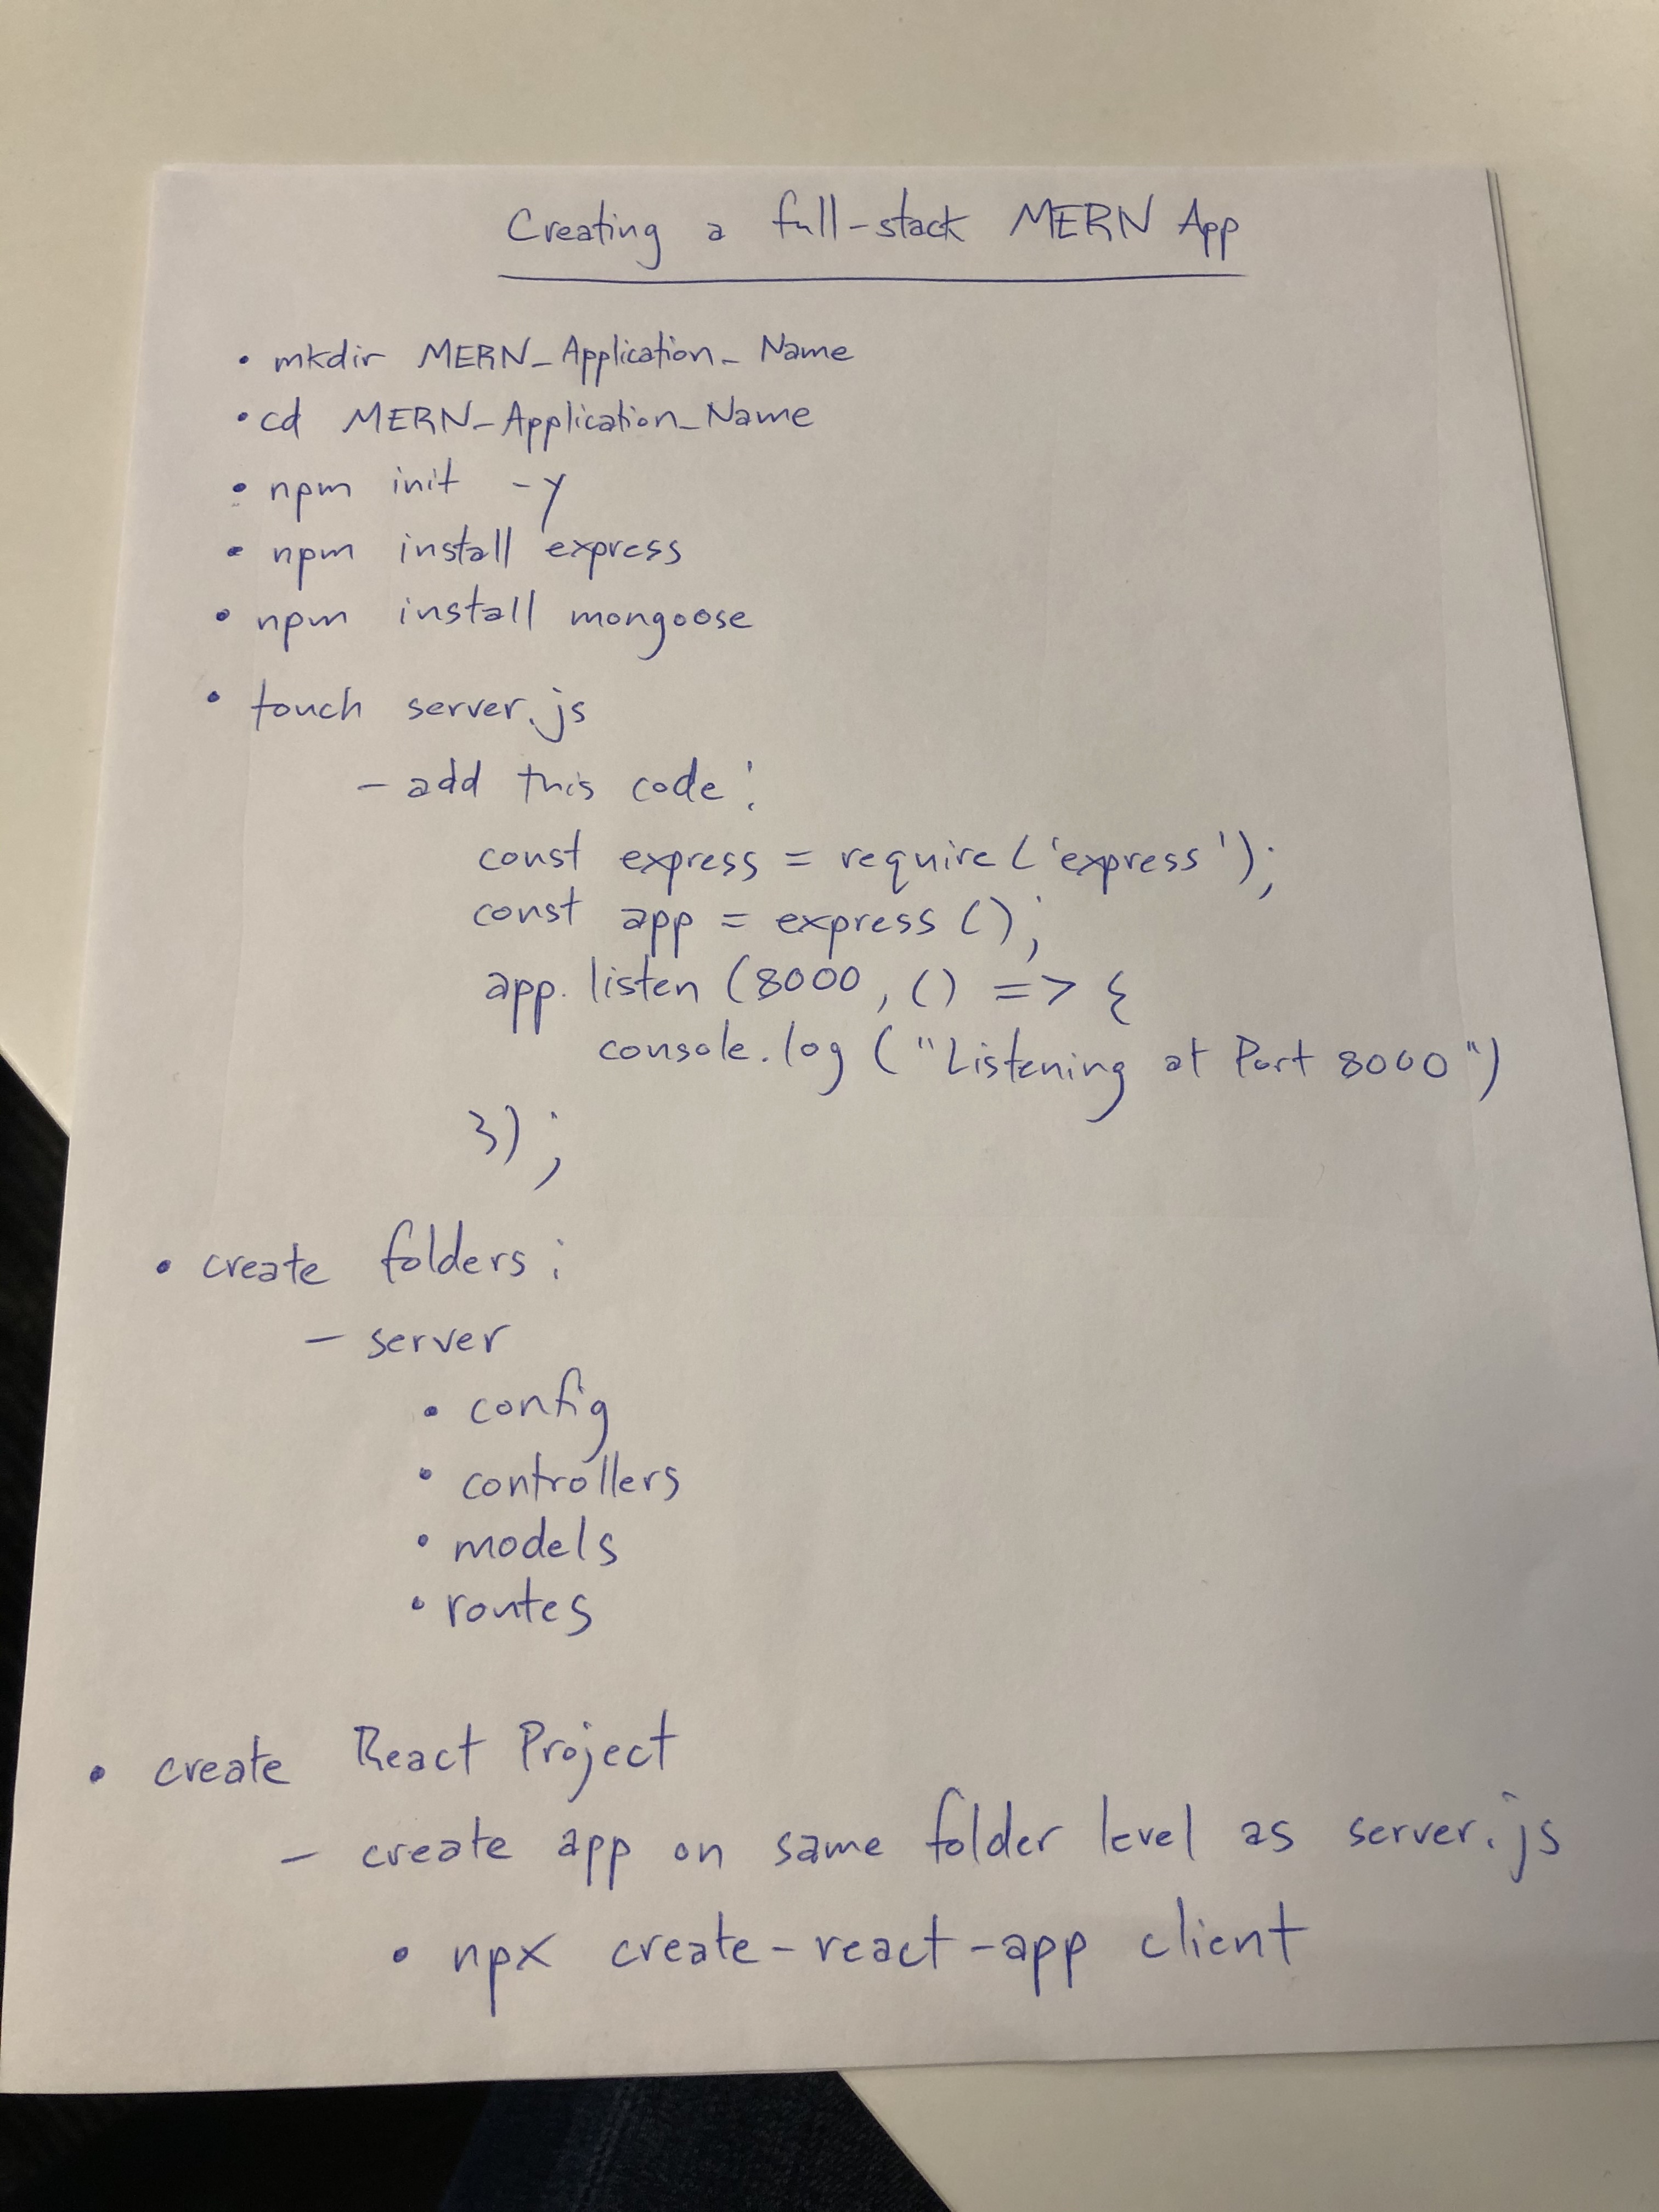 Creating a full-stack MERN App
• mkdir MERN_Application_Name
• cd MERN_Application_Name
• npm init -y
• npm install express
• npm install mongoose
• touch server.js
– add this code:
const express = require('express');
const app = express();
app.listen(8000, () => {
console.log("Listening at Port 8000")
});
• create folders:
– server
• config
• controllers
• models
• routes
• create React Project
– create app on same folder level as server.js
• npx create-react-app client